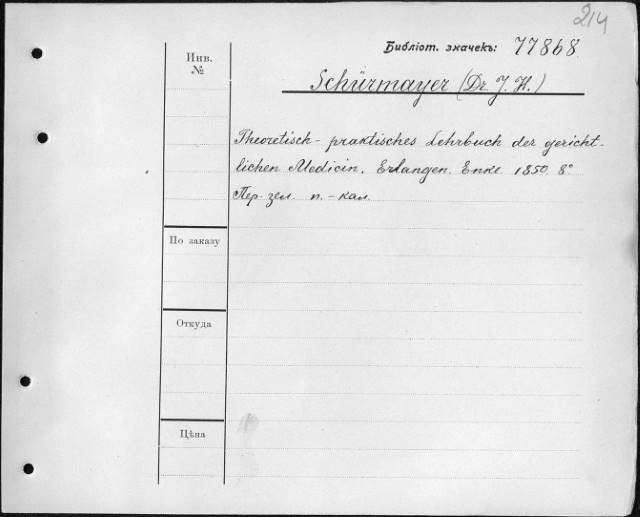 214
Библіот. значекъ: 77868
Инв.
№
Schürmayer (Dr. J. H.)
Theoretisch-praktisches Lehrbuch der gericht-
lichen Medicin. Erlangen. Enke 1850. 8°
Пер. зел. п.-кал.
По заказу
Откуда
Цѣна